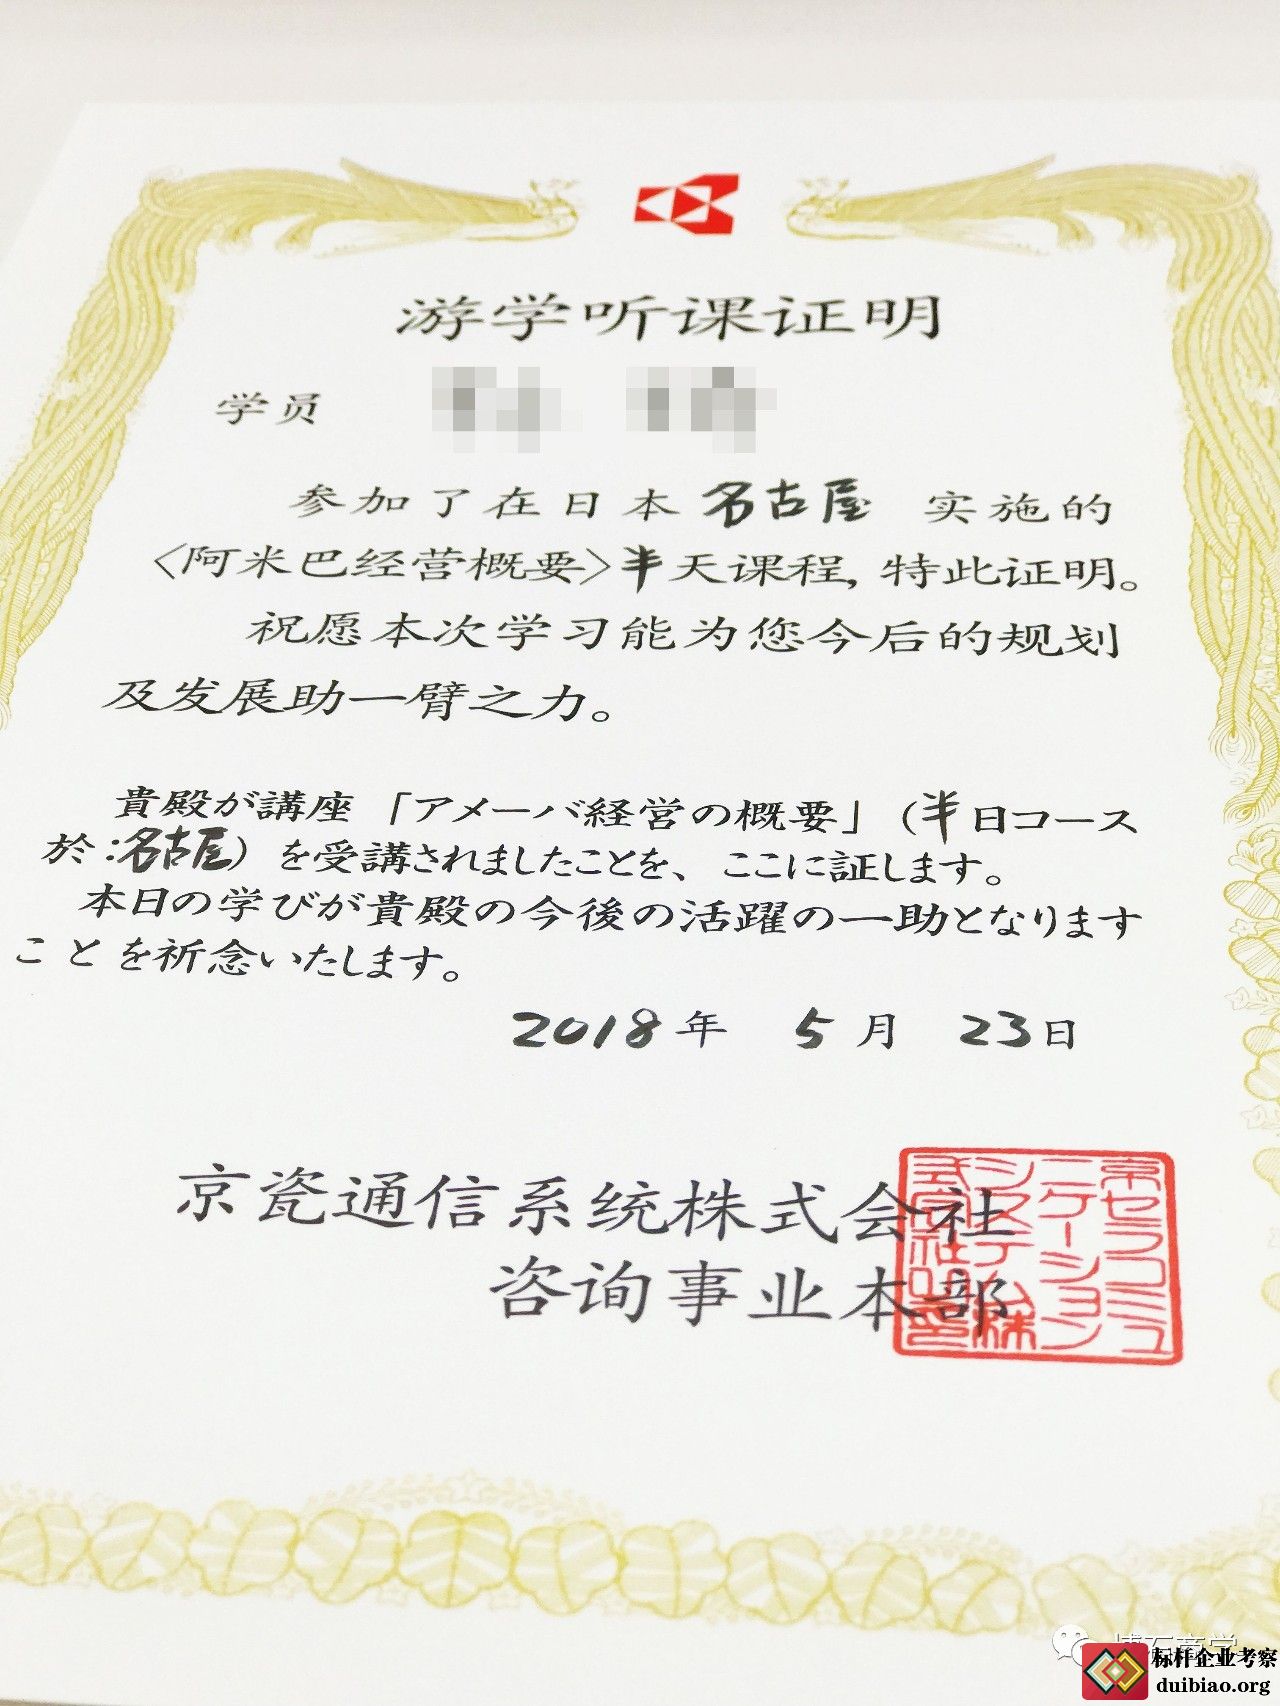 游学听课证明
学员
参加了在日本 名古屋 实施的
〈阿米巴经营概要〉半天课程，特此证明。
祝愿本次学习能为您今后的规划
及发展助一臂之力。
貴殿が講座「アメーバ経営の概要」（半日コース
於：名古屋）を受講されましたことを、ここに証します。
本日の学びが貴殿の今後の活躍の一助となります
ことを祈念いたします。
2018年 5月 23日
京瓷通信系统株式会社
咨询事业本部
京セラコミュ
ニケーション
システム株
式会社
博石商学
标杆企业考察
duibiao.org